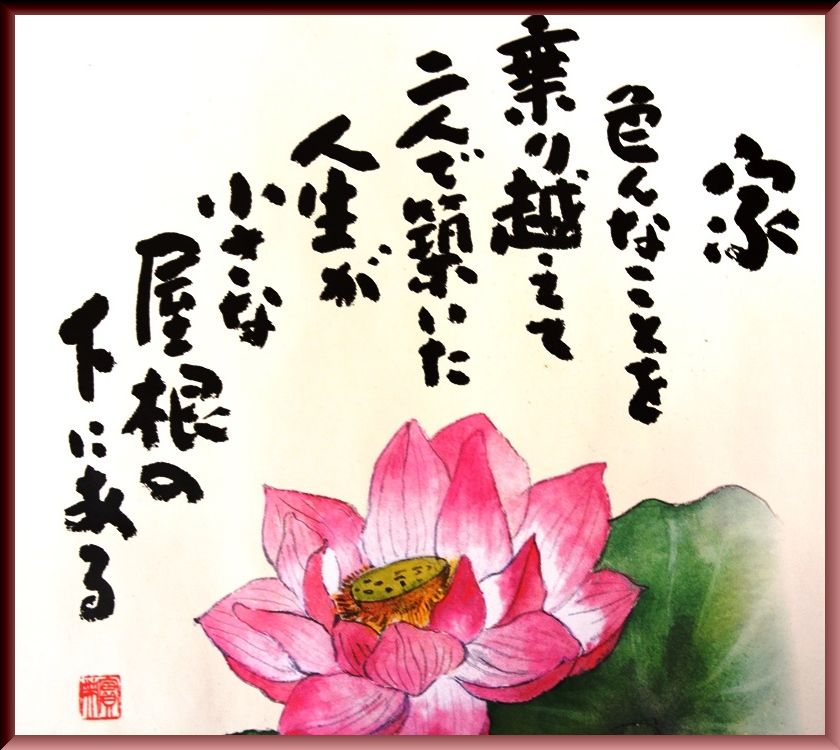 家
色んなことを
乗り越えて
二人で築いた
人生が
小さな
屋根の
下にある